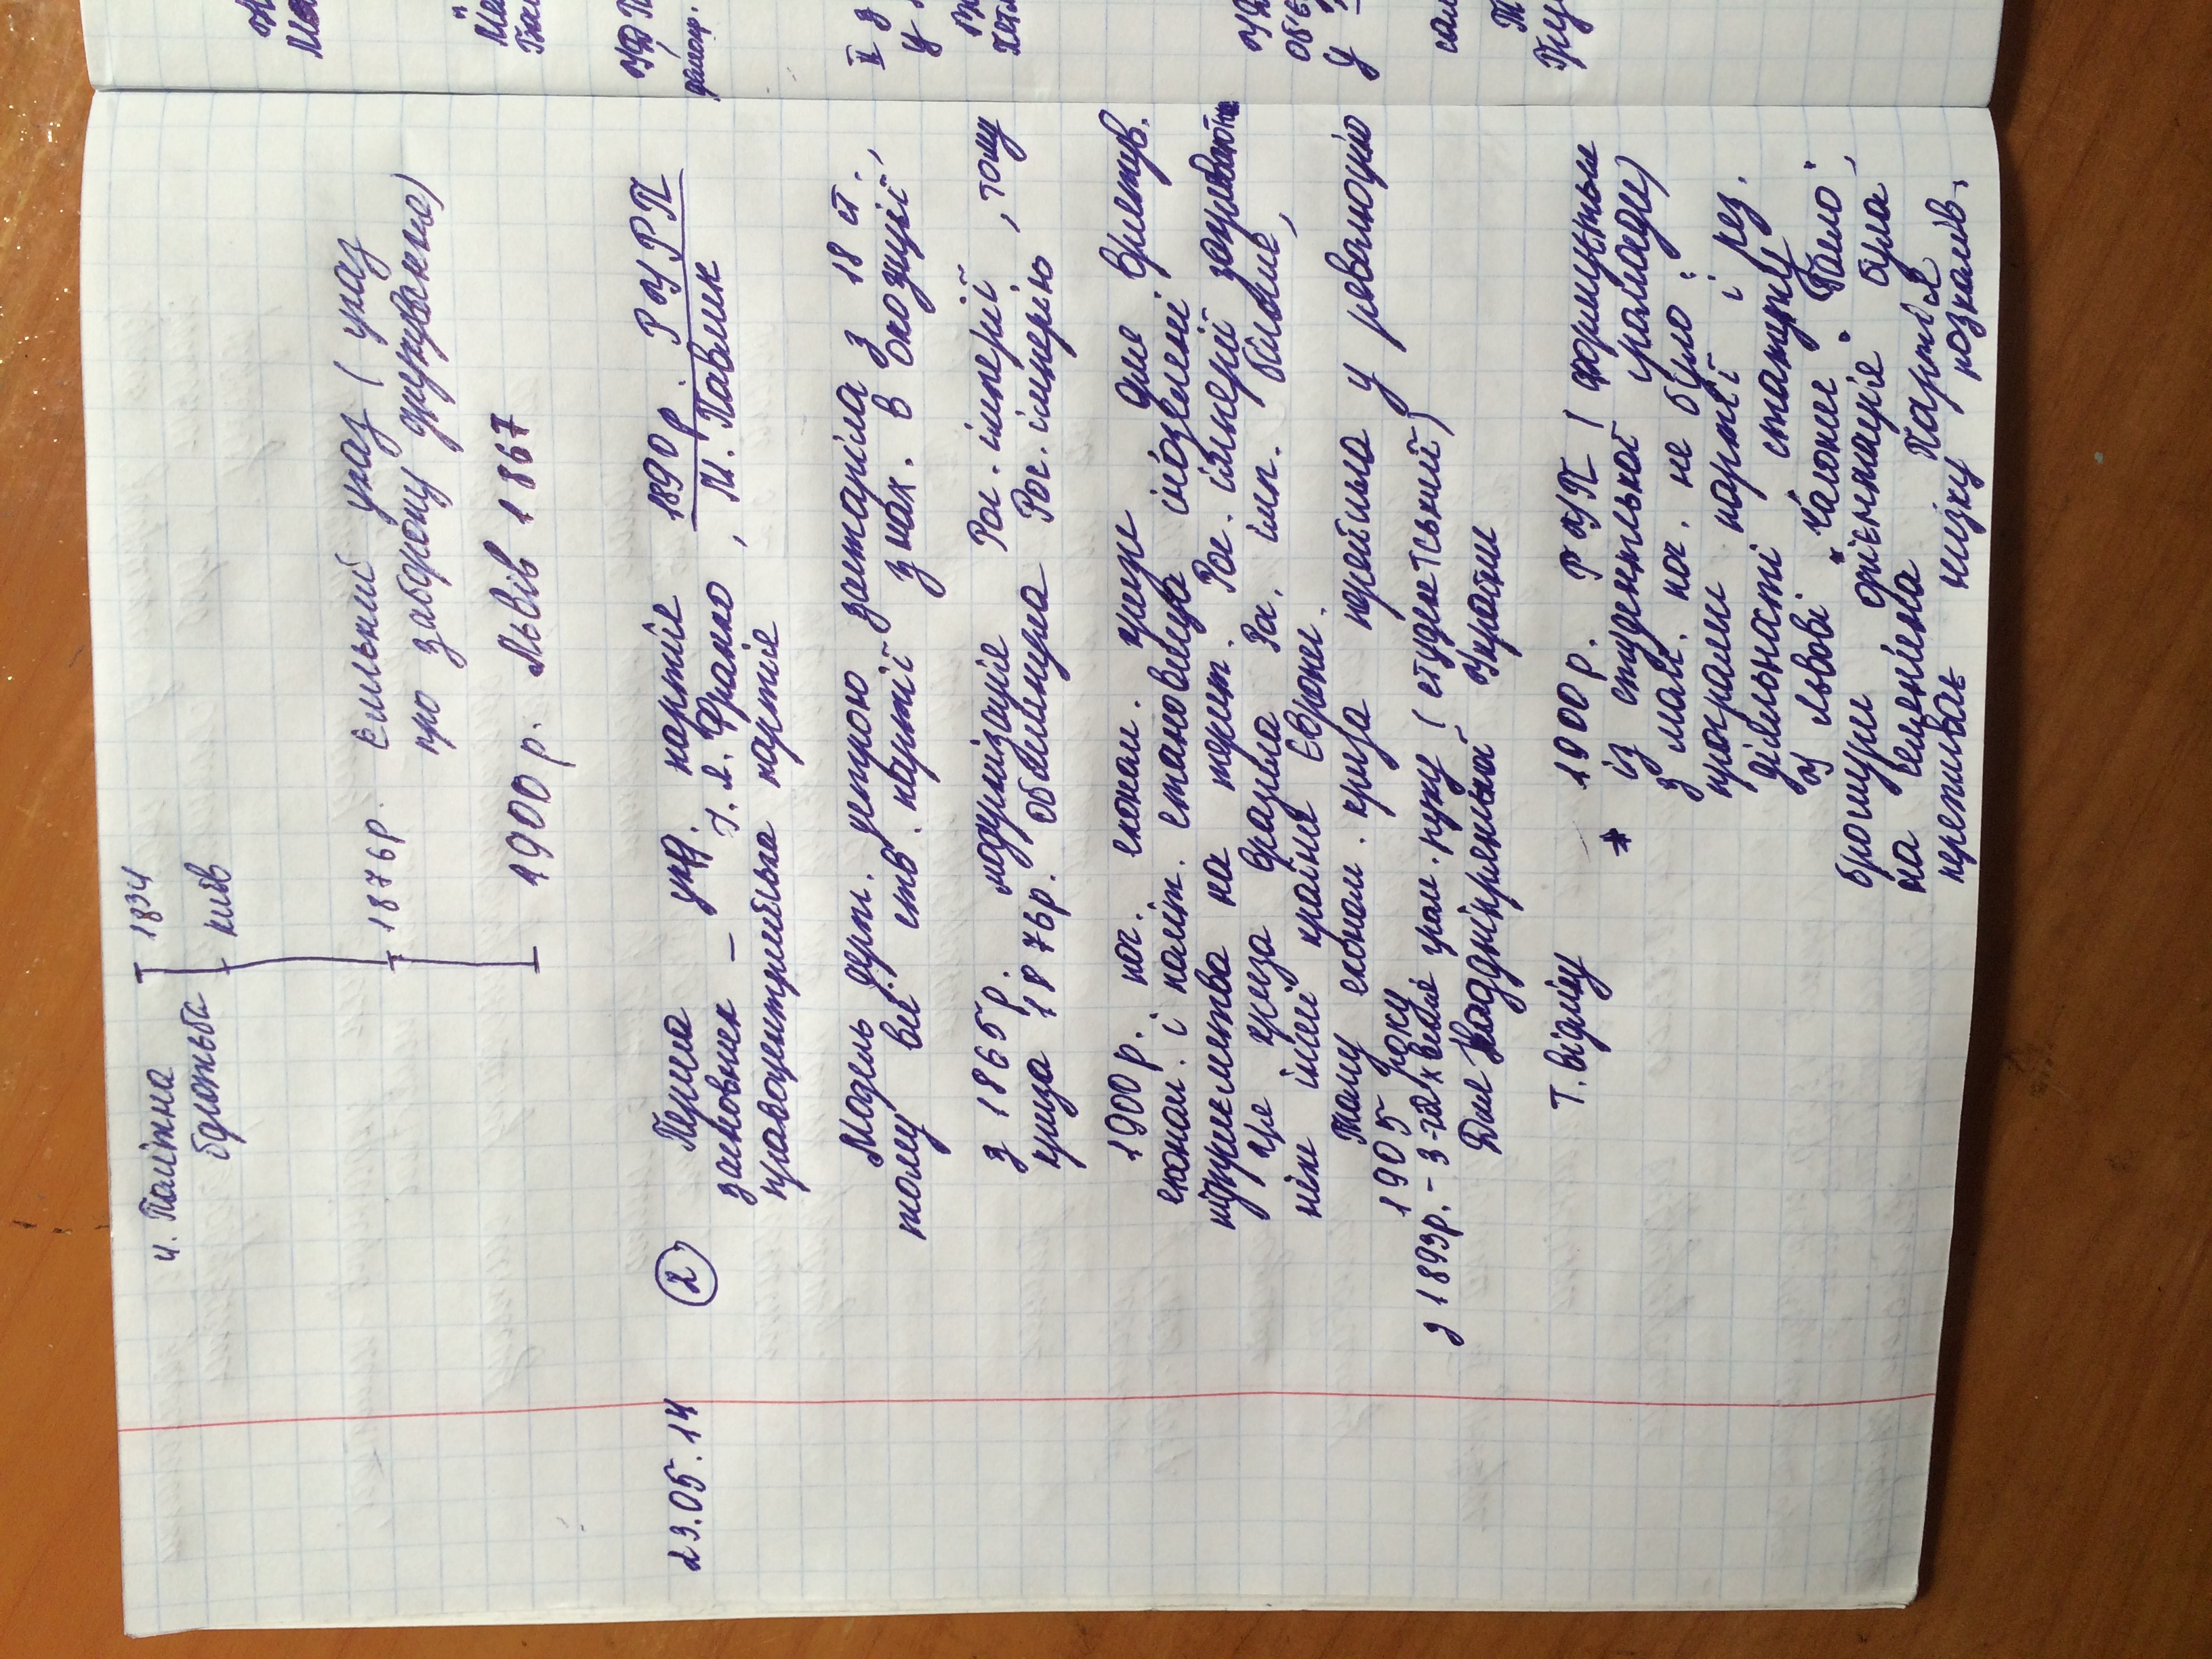 4. Політична
боротьба
1834
Київ
1876р. Ємський указ (указ
про заборону друкування)
1900р. Львів 1867
23.05.14
2) Перша укр. партія 1890р. РУРП
засновник - І. Я. Франко, М. Павлик
правоцентрийська партія
Модель держ. устрою застаріла з 18 ст.,
тому всі ств. партії знах. в опозиції
з 1865р. модернізація Рос. імперії, тому
криза 1876р. обминула Рос. імперію
1900р. поч. економ. кризи, для врятув.
економ. і політ. становища іноземні
підприємства на терит. Рос. імперії закриваються
Ця криза вразила Рос. імп. більше,
ніж інші країни Європи.
Тому економ. криза перейшла у революцію
1905 року
з 1893р. - 3-тя хвиля гром. руху (студентський)
Для Наддніпрянської України
Т. відліку
1900р. РУП (формується
* із студентської громади)
з мом. поч. не було:
програми партії і рез.
діяльності, статуту
У Львові "Часопис" "Гасло",
брошури, орієнтація була
на селянина. Партія
переживає низку розколів.